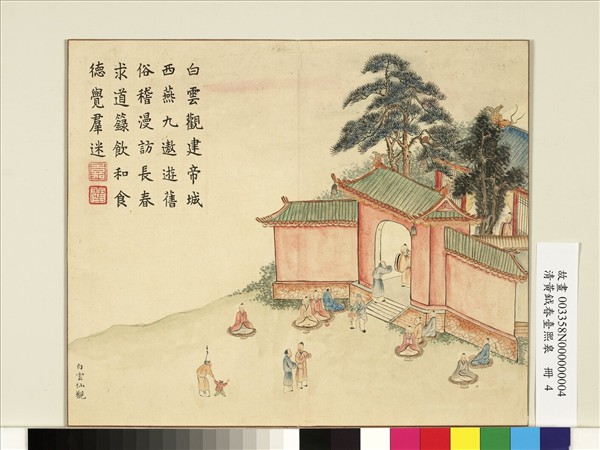 白雲觀建帝城
西燕九遨遊舊
俗稽漫訪長春
求道籙飲和食
德覺羣迷
白雲仙觀
故畫 003358N000000004
清黃鉞春臺熙皞　冊 4